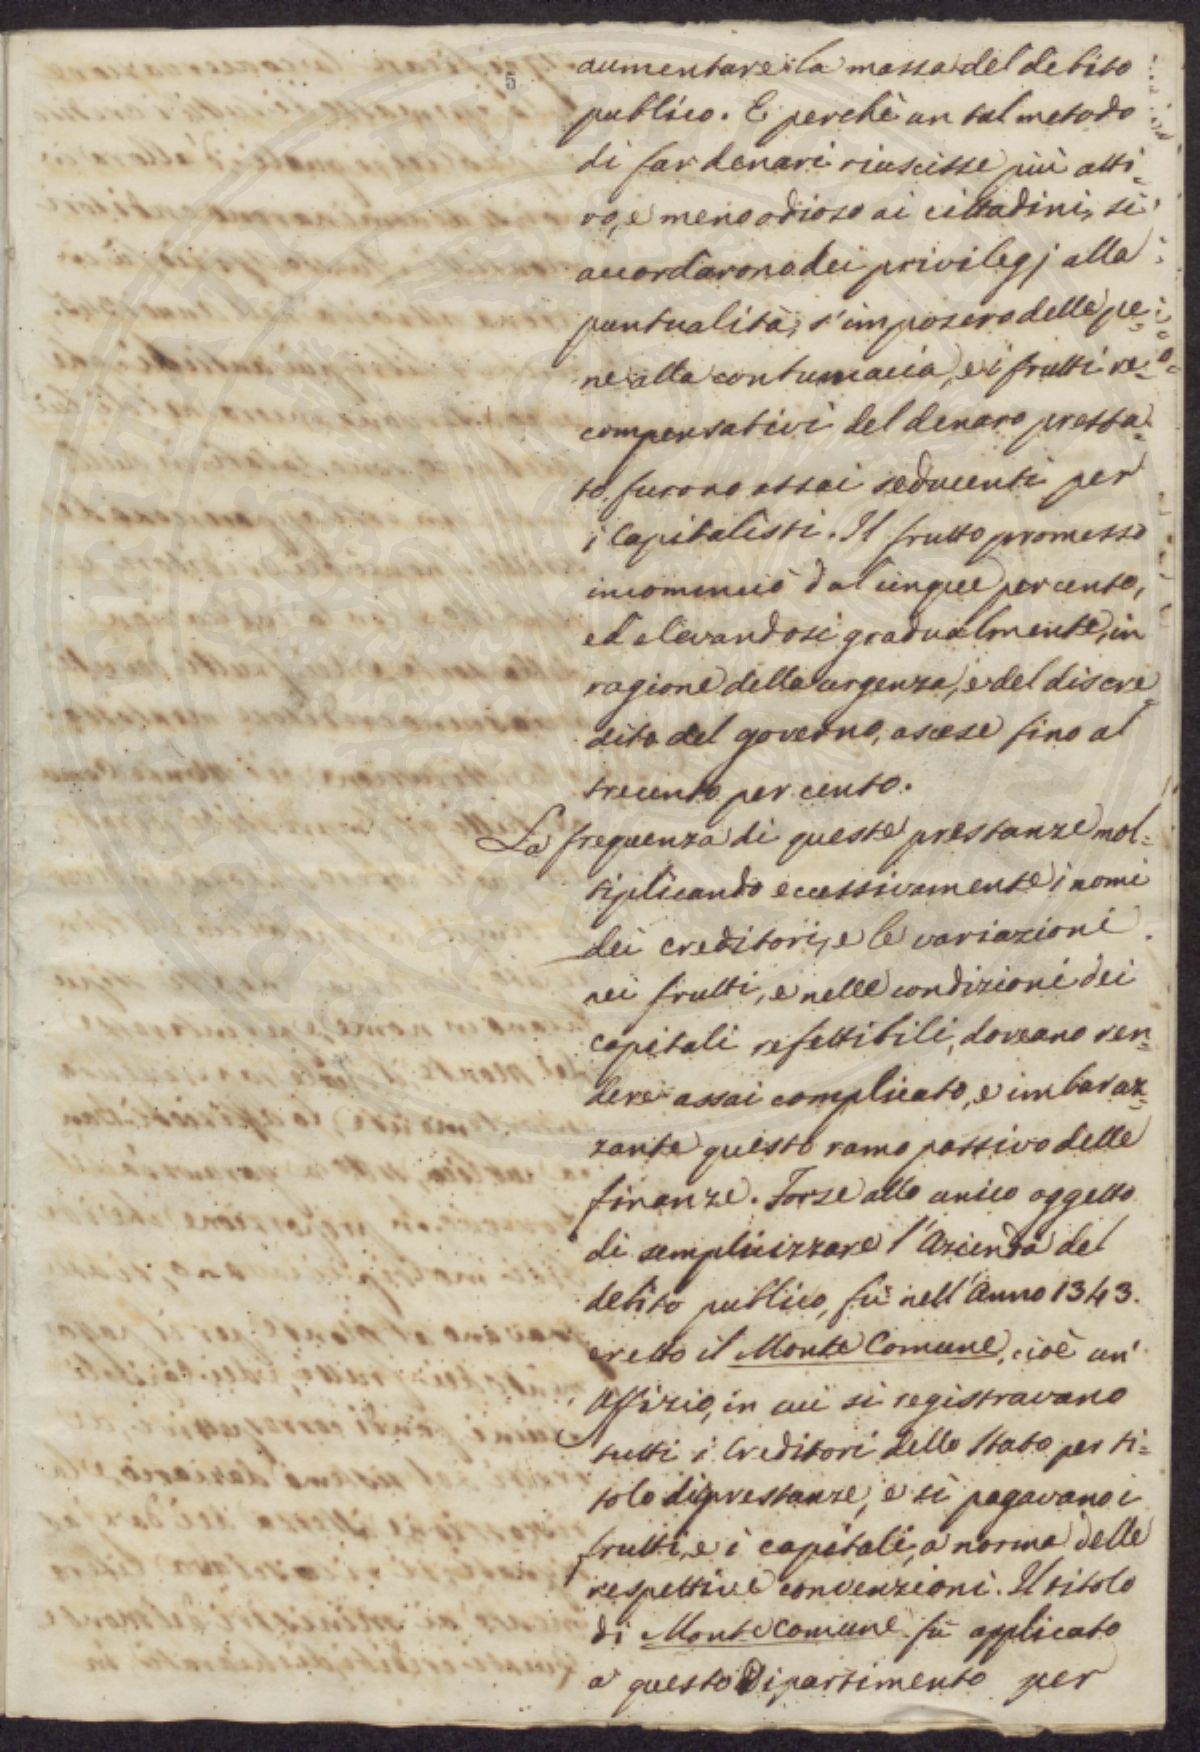 5
aumentare la massa del debito
publico. E perchè un tal metodo
di far denari riuscisse più atti=
vo, e meno odioso ai cittadini, si
accordarono dei privilegj alla
puntualità, s'imposero delle pe=
ne alla contumacia, e i frutti re=
compensativi del denaro presta=
to furono assai seducenti per
i Capitalisti. Il frutto promesso
incominciò dal cinque per cento,
ed elevandosi gradualmente, in
ragione della urgenza, e del discre=
dito del governo, ascese fino al
trecento per cento.
La frequenza di queste prestanze mol=
tiplicando eccessivamente i nomi
dei creditori, e le variazioni
nei frutti, e nelle condizioni dei
capitali refettibili, doveano ren=
dere assai complicato, e imbaraz=
zante questo ramo passivo delle
finanze. Forse allo unico oggetto
di semplicizzare l'Azienda del
debito publico, fù nell'Anno 1343.
eretto il Monte Comune, cioè un'
Offizio, in cui si registravano
tutti i Creditori dello Stato per ti=
tolo di prestanze, e si pagavano i
frutti, e i capitali, a norma delle
respettive convenzioni. Il titolo
di Monte Comune fù applicato
a questo Dipartimento per